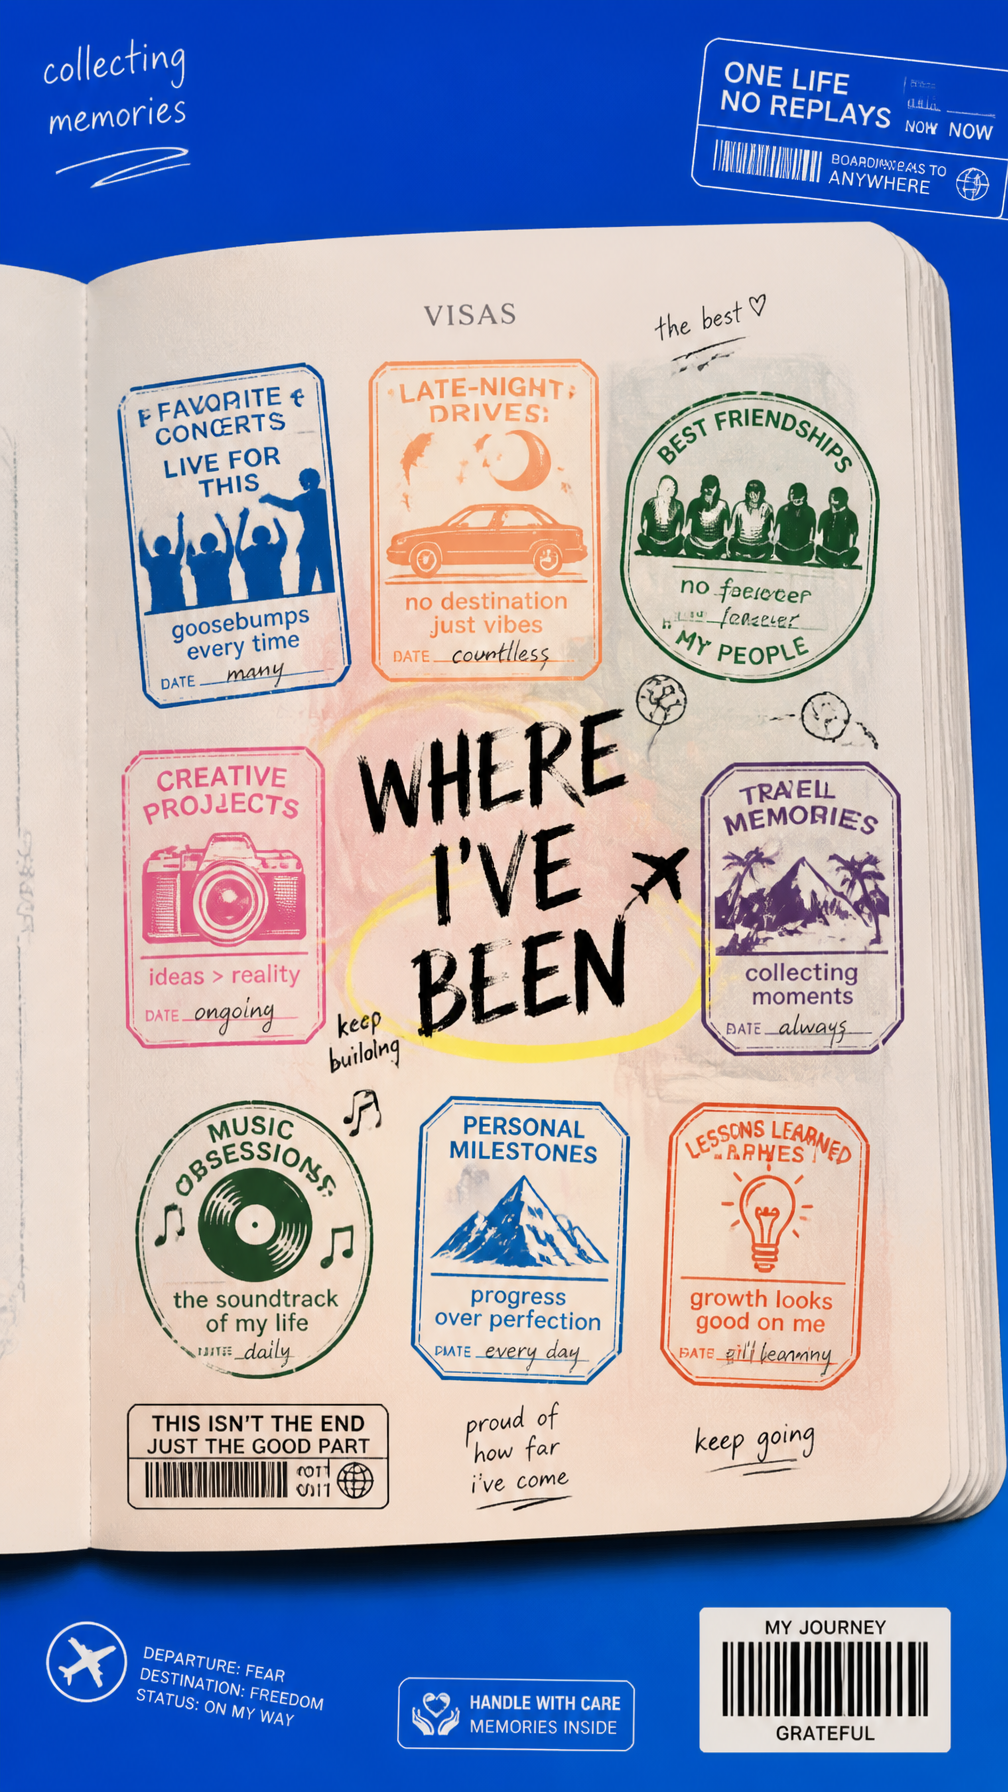 collecting
memories
ONE LIFE
NO REPLAYS
NOW NOW
TO
ANYWHERE
VISAS
the best
FAVORITE
CONCERTS
LIVE FOR
THIS
goosebumps
every time
DATE many
LATE-NIGHT
DRIVES:
no destination
just vibes
DATE countlless
BEST FRIENDSHIPS
no
MY PEOPLE
WHERE
I'VE
BEEN
CREATIVE
PROJJECTS
ideas > reality
DATE ongoing
keep
builolng
TRAVELL
MEMORIES
collecting
moments
DATE always
MUSIC
OBSESSIONS
the soundtrack
of my life
daily
PERSONAL
MILESTONES
progress
over perfection
DATE every day
LESSONS LEARNED
growth looks
good on me
DATE
THIS ISN'T THE END
JUST THE GOOD PART
proud of
how far
i've come
keep going
DEPARTURE: FEAR
DESTINATION: FREEDOM
STATUS: ON MY WAY
HANDLE WITH CARE
MEMORIES INSIDE
MY JOURNEY
GRATEFUL